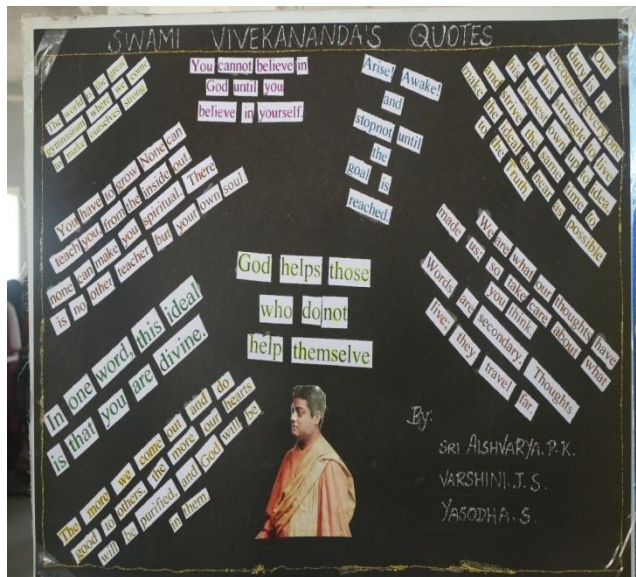 SWAMI VIVEKANANDA'S QUOTES
The world is the great
gymnasium where we come
to make ourselves strong
You cannot believe in
God until you
believe in yourself.
Arise! Awake!
and
stopnot until
the
goal is
reached.
Our
duty is to
encourage every one
in his struggle to live
up to his highest own idea
and strive the same time to
make the ideal as near as possible
to the Truth.
You have to grow None can
teach you from the inside out.
none can make you spiritual. There
is no other teacher but your own soul
God helps those
who do not
help themselve
We are what our thoughts have
made us; so take care about what
you think
Words are secondary. Thoughts
live; they travel far.
In one word, this ideal
is that you are divine.
The more we come out and do
good to others, the more our hearts
will be purified, and God will be
in them.
By:
SRI AISHVARYA.P.K.
VARSHINI.J.S.
YASODHA.S.